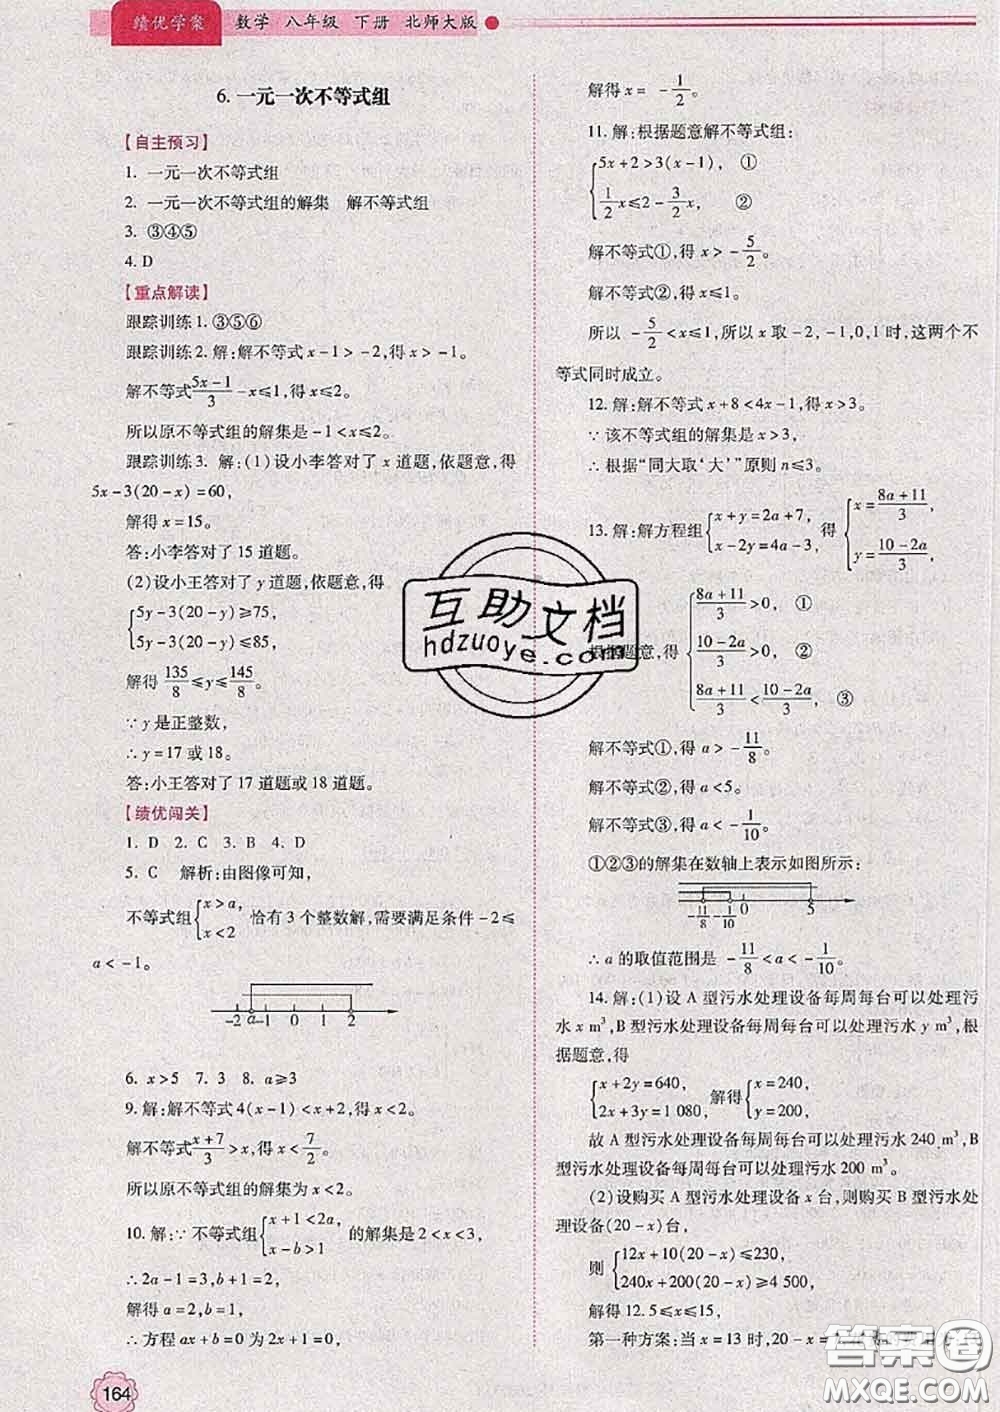 绩优学案 数学 八年级 下册 北师大版
6. 一元一次不等式组
【自主预习】
1. 一元一次不等式组
2. 一元一次不等式组的解集 解不等式组
3. ③④⑤
4. D
【重点解读】
跟踪训练1. ③⑤⑥
跟踪训练2. 解:解不等式 x-1>-2,得 x>-1。
解不等式 (5x-1)/3 -x≤1,得 x≤2。
所以原不等式组的解集是 -1<x≤2。
跟踪训练3. 解:(1)设小李答对了 x 道题,依题意,得
5x-3(20-x)=60,
解得 x=15。
答:小李答对了 15 道题。
(2)设小王答对了 y 道题,依题意,得
{5y-3(20-y)≥75,
5y-3(20-y)≤85,
解得 135/8≤y≤145/8。
∵y 是正整数,
∴y=17 或 18。
答:小王答对了 17 道题或 18 道题。
【绩优闯关】
1. D 2. C 3. B 4. D
5. C 解析:由图像可知,
不等式组{x>a, x<2 恰有 3 个整数解,需要满足条件 -2≤
a<-1。
-2 a -1 0 1 2
6. x>5 7. 3 8. a≥3
9. 解:解不等式 4(x-1)<x+2,得 x<2。
解不等式 (x+7)/3>x,得 x<7/2。
所以原不等式组的解集为 x<2。
10. 解:∵不等式组{x+1<2a, x-b>1 的解集是 2<x<3,
∴2a-1=3,b+1=2,
解得 a=2,b=1,
∴方程 ax+b=0 为 2x+1=0,
164
解得 x= -1/2。
11. 解:根据题意解不等式组:
{5x+2>3(x-1), ①
1/2 x≤2-3/2 x, ②
解不等式①,得 x>-5/2。
解不等式②,得 x≤1。
所以 -5/2<x≤1,所以 x 取 -2,-1,0,1 时,这两个不
等式同时成立。
12. 解:解不等式 x+8<4x-1,得 x>3。
∵该不等式组的解集是 x>3,
∴根据“同大取‘大’”原则 n≤3。
13. 解:解方程组{x+y=2a+7, x-2y=4a-3, 得{x=(8a+11)/3, y=(10-2a)/3,
根据题意,得{(8a+11)/3>0, ①
(10-2a)/3>0, ②
(8a+11)/3<(10-2a)/3, ③
解不等式①,得 a>-11/8。
解不等式②,得 a<5。
解不等式③,得 a<-1/10。
①②③的解集在数轴上表示如图所示:
-11/8 -1/10 0 5
∴a 的取值范围是 -11/8<a<-1/10。
14. 解:(1)设 A 型污水处理设备每周每台可以处理污
水 x m³,B 型污水处理设备每周每台可以处理污水 y m³,根
据题意,得
{x+2y=640, 2x+3y=1 080, 解得{x=240, y=200,
故 A 型污水处理设备每周每台可以处理污水 240 m³,B
型污水处理设备每周每台可以处理污水 200 m³。
(2)设购买 A 型污水处理设备 x 台,则购买 B 型污水处
理设备(20-x)台,
则{12x+10(20-x)≤230,
240x+200(20-x)≥4 500,
解得 12.5≤x≤15,
第一种方案:当 x=13 时,20-x=
互助文档
hdzuoye.com
答案圈
MXQE.COM